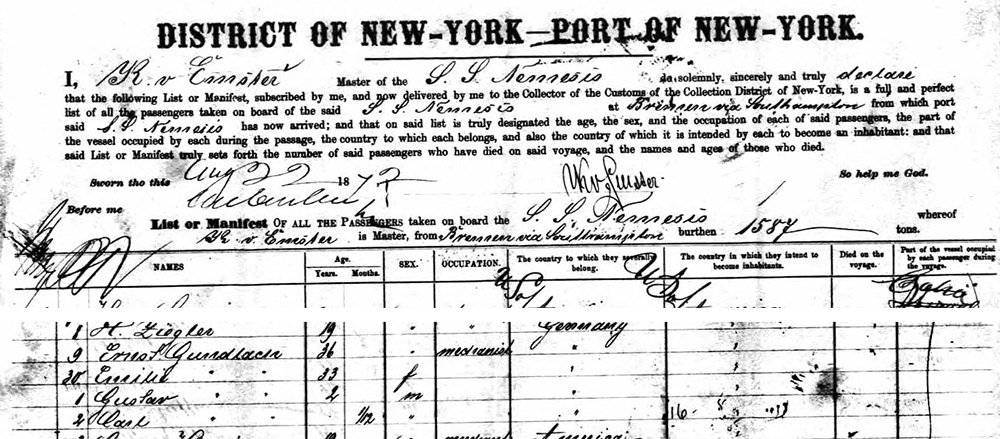 DISTRICT OF NEW-YORK—PORT OF NEW-YORK.
I, K v Emster Master of the S. S. Nemesis do solemnly, sincerely and truly declare
that the following List or Manifest, subscribed by me, and now delivered by me to the Collector of the Customs of the Collection District of New-York, is a full and perfect
list of all the passengers taken on board of the said S. S. Nemesis at Bremen via Southampton from which port
said S. S. Nemesis has now arrived; and that on said list is truly designated the age, the sex, and the occupation of each of said passengers, the part of
the vessel occupied by each during the passage, the country to which each belongs, and also the country of which it is intended by each to become an inhabitant: and that
said List or Manifest truly sets forth the number of said passengers who have died on said voyage, and the names and ages of those who died.
Sworn tho this Aug 22 1872 So help me God.
Before me
List or Manifest OF ALL THE PASSENGERS taken on board the S. S. Nemesis whereof
K v. Emster is Master, from Bremen via Southampton burthen 1587 tons.
NAMES Age. Years. Months. SEX. OCCUPATION. The country to which they severally belong. The country in which they intend to become inhabitants. Died on the voyage. Part of the vessel occupied by each passenger during the voyage.
H. Ziegler 19 " " Germany
9 Ernst Gundlach 36 " mechanic " "
30 Emilie " " 33 f " "
1 Gustav " " 2 m " "
2 Carl " " "